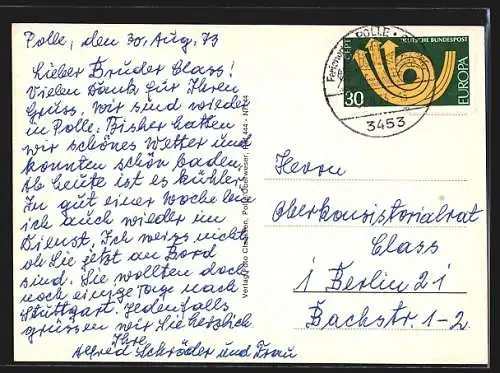 Polle, den 30. Aug. 73
Lieber Bruder Class!
Vielen Dank für Ihren
Gruss. Wir sind wieder
in Polle. Bisher hatten
wir schönes Wetter und
konnten schön baden.
Ab heute ist es kühler.
In gut einer Woche bin
ich auch wieder im
Dienst. Ich weiss nicht,
ob Sie jetzt an Bord
sind. Sie wollten doch
noch einige Tage nach
Stuttgart. Jedenfalls
grüssen wir Sie herzlich
Ihre
Alfred Schröder und Frau
Verlag Otto Polle/Oberweser, 444 - N
POLLE
3453
CEPT
DEUTSCHE BUNDESPOST
30
EUROPA
Herrn
Oberkonsistorialrat
Class
1 Berlin 21
Bachstr. 1-2